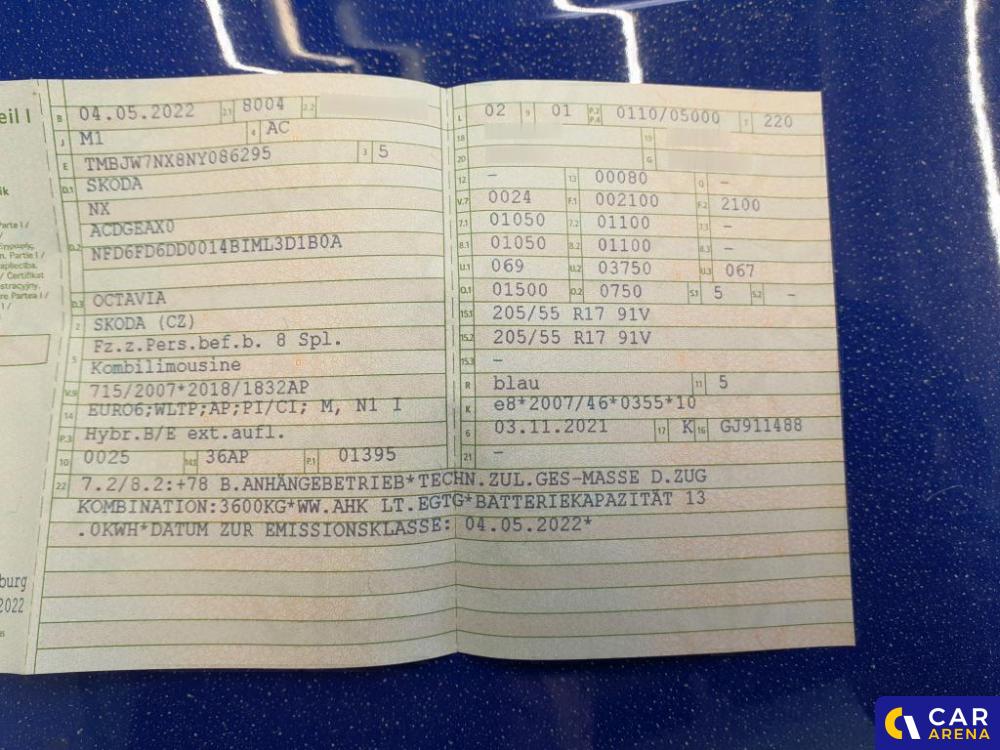 eil I
B 04.05.2022 2.1 8004 2.2
J M1 4 AC
E TMBJW7NX8NY086295 3 5
D.1 SKODA
NX
D.2 ACDGEAX0
NFD6FD6DD0014BIML3D1B0A
D.3 OCTAVIA
2 SKODA (CZ)
5 Fz.z.Pers.bef.b. 8 Spl.
Kombilimousine
V.9 715/2007*2018/1832AP
14 EURO6;WLTP;AP;PI/CI; M, N1 I
P.3 Hybr.B/E ext.aufl.
10 0025 14.1 36AP P.1 01395
L 02 9 01 P.2 P.4 0110/05000 T 220
18 19
20 G
12 - 13 00080 Q -
V.7 0024 F.1 002100 F.2 2100
7.1 01050 7.2 01100 7.3 -
8.1 01050 8.2 01100 8.3 -
U.1 069 U.2 03750 U.3 067
O.1 01500 O.2 0750 S.1 5 S.2 -
15.1 205/55 R17 91V
15.2 205/55 R17 91V
15.3 -
R blau 11 5
K e8*2007/46*0355*10
6 03.11.2021 17 K 16 GJ911488
21 -
22 7.2/8.2:+78 B.ANHÄNGEBETRIEB*TECHN.ZUL.GES-MASSE D.ZUG
KOMBINATION:3600KG*WW.AHK LT.EGTG*BATTERIEKAPAZITÄT 13
.0KWH*DATUM ZUR EMISSIONSKLASSE: 04.05.2022*
burg
2022
CAR
ARENA